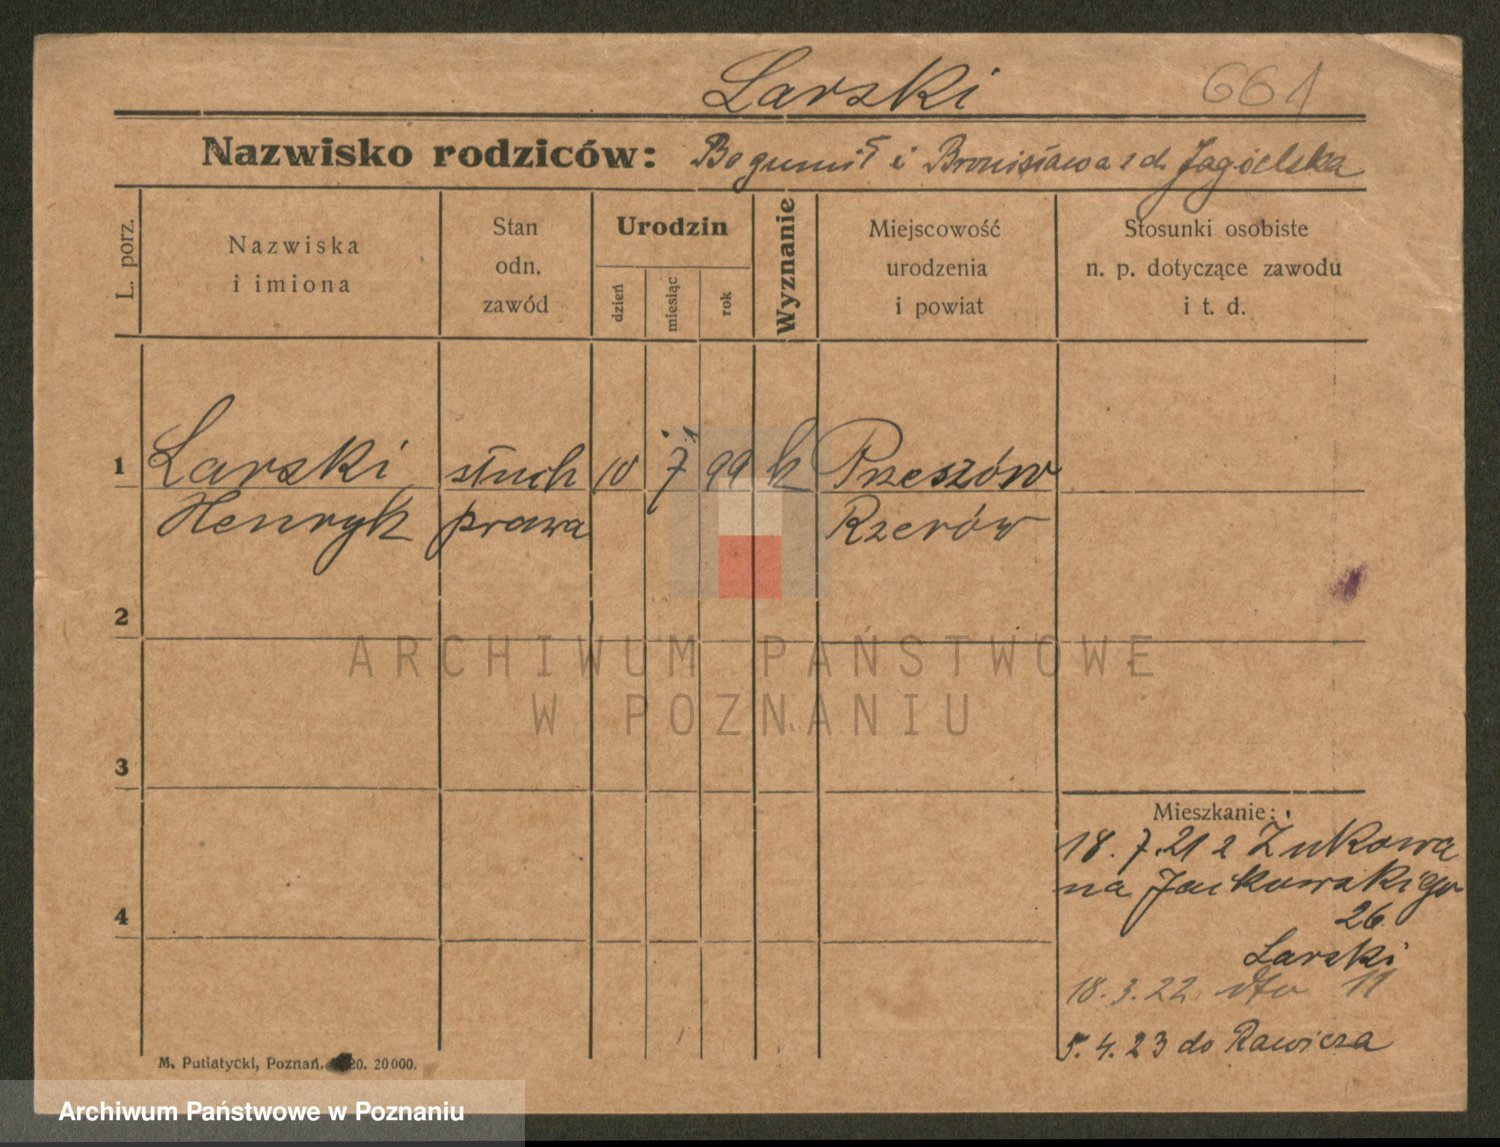 Larski 661
Nazwisko rodziców: Bogumił i Bronisława z d. Jagielska
L. porz.
Nazwiska
i imiona
Stan
odn.
zawód
Urodzin
dzień
miesiąc
rok
Wyznanie
Miejscowość
urodzenia
i powiat
Stosunki osobiste
n. p. dotyczące zawodu
i t. d.
1 Larski słuch 10 7 99 k Przeszów
Henryk prawa Rzerów
2
3
4
Mieszkanie:
18.7.21 z Żukowa
na Jackowskiego
26
Larski
18.3.22 dto 11
5.4.23 do Rawicza
M. Putiatycki, Poznań. 20. 20000.
ARCHIWUM PAŃSTWOWE
W POZNANIU
Archiwum Państwowe w Poznaniu